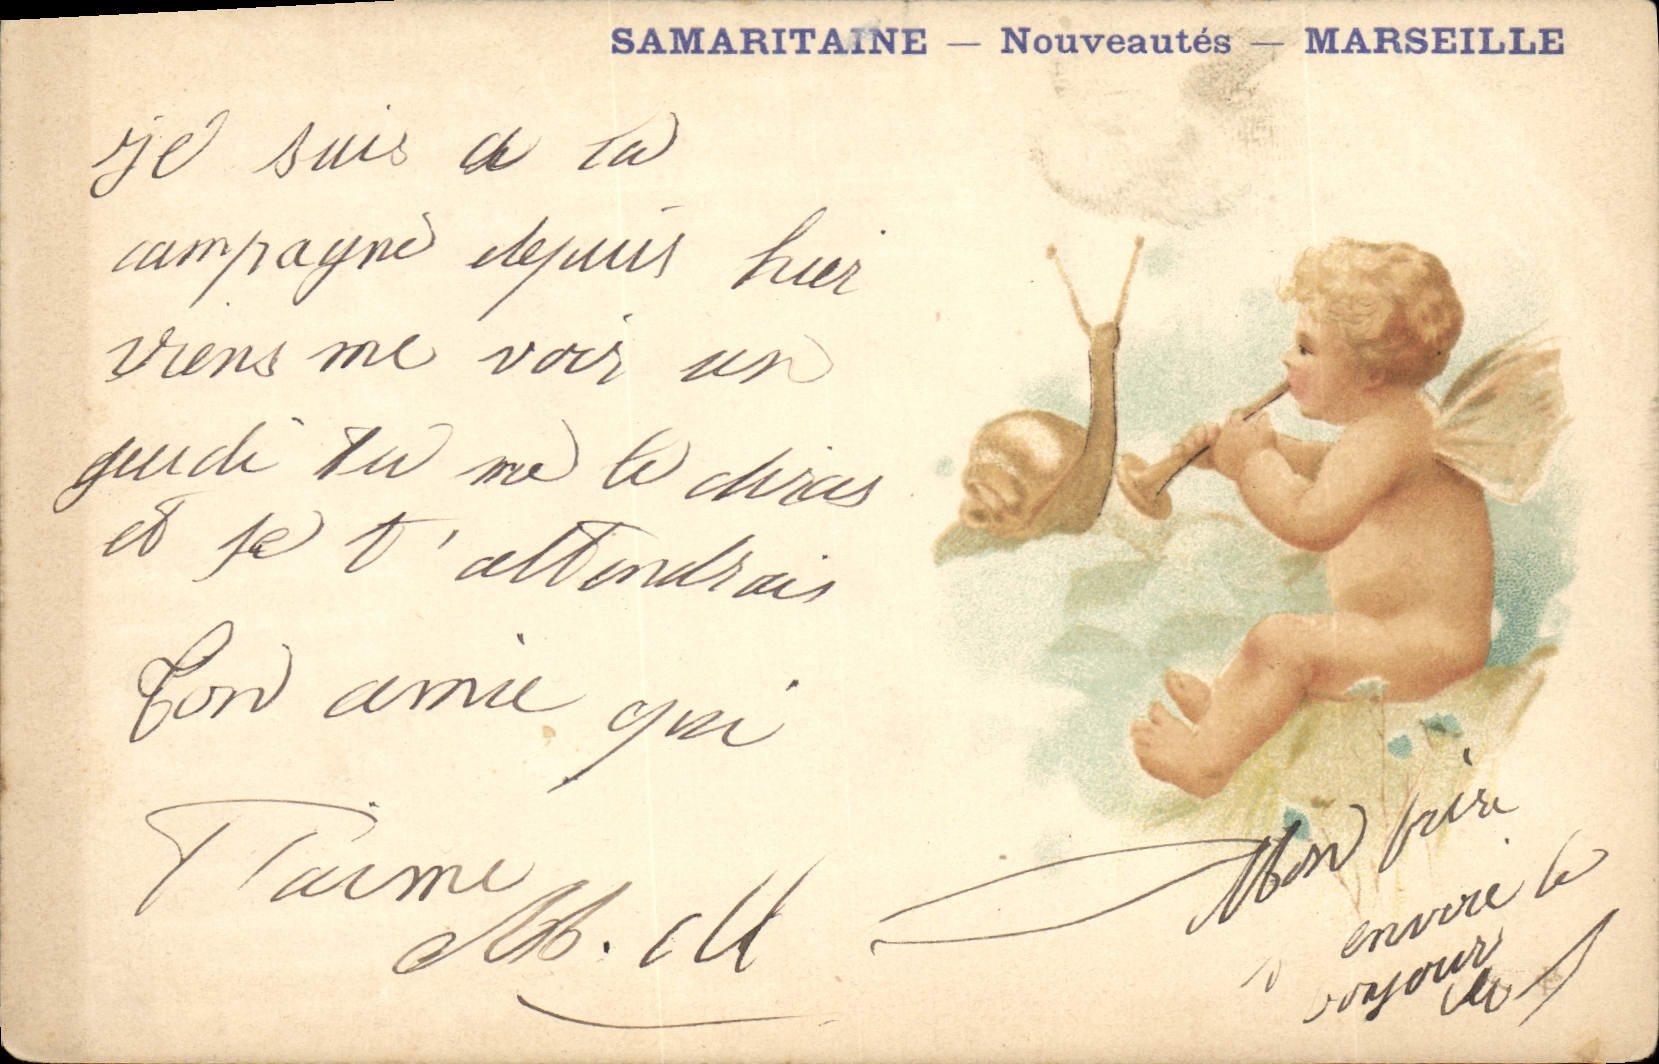 SAMARITAINE — Nouveautés — MARSEILLE
je suis a la
campagne depuis hier
viens me voir un
jeudi tu me le diras
et je t'attendrais
ton amie qui
T'aime
M. M
Mon frère
envoie le
bonjour